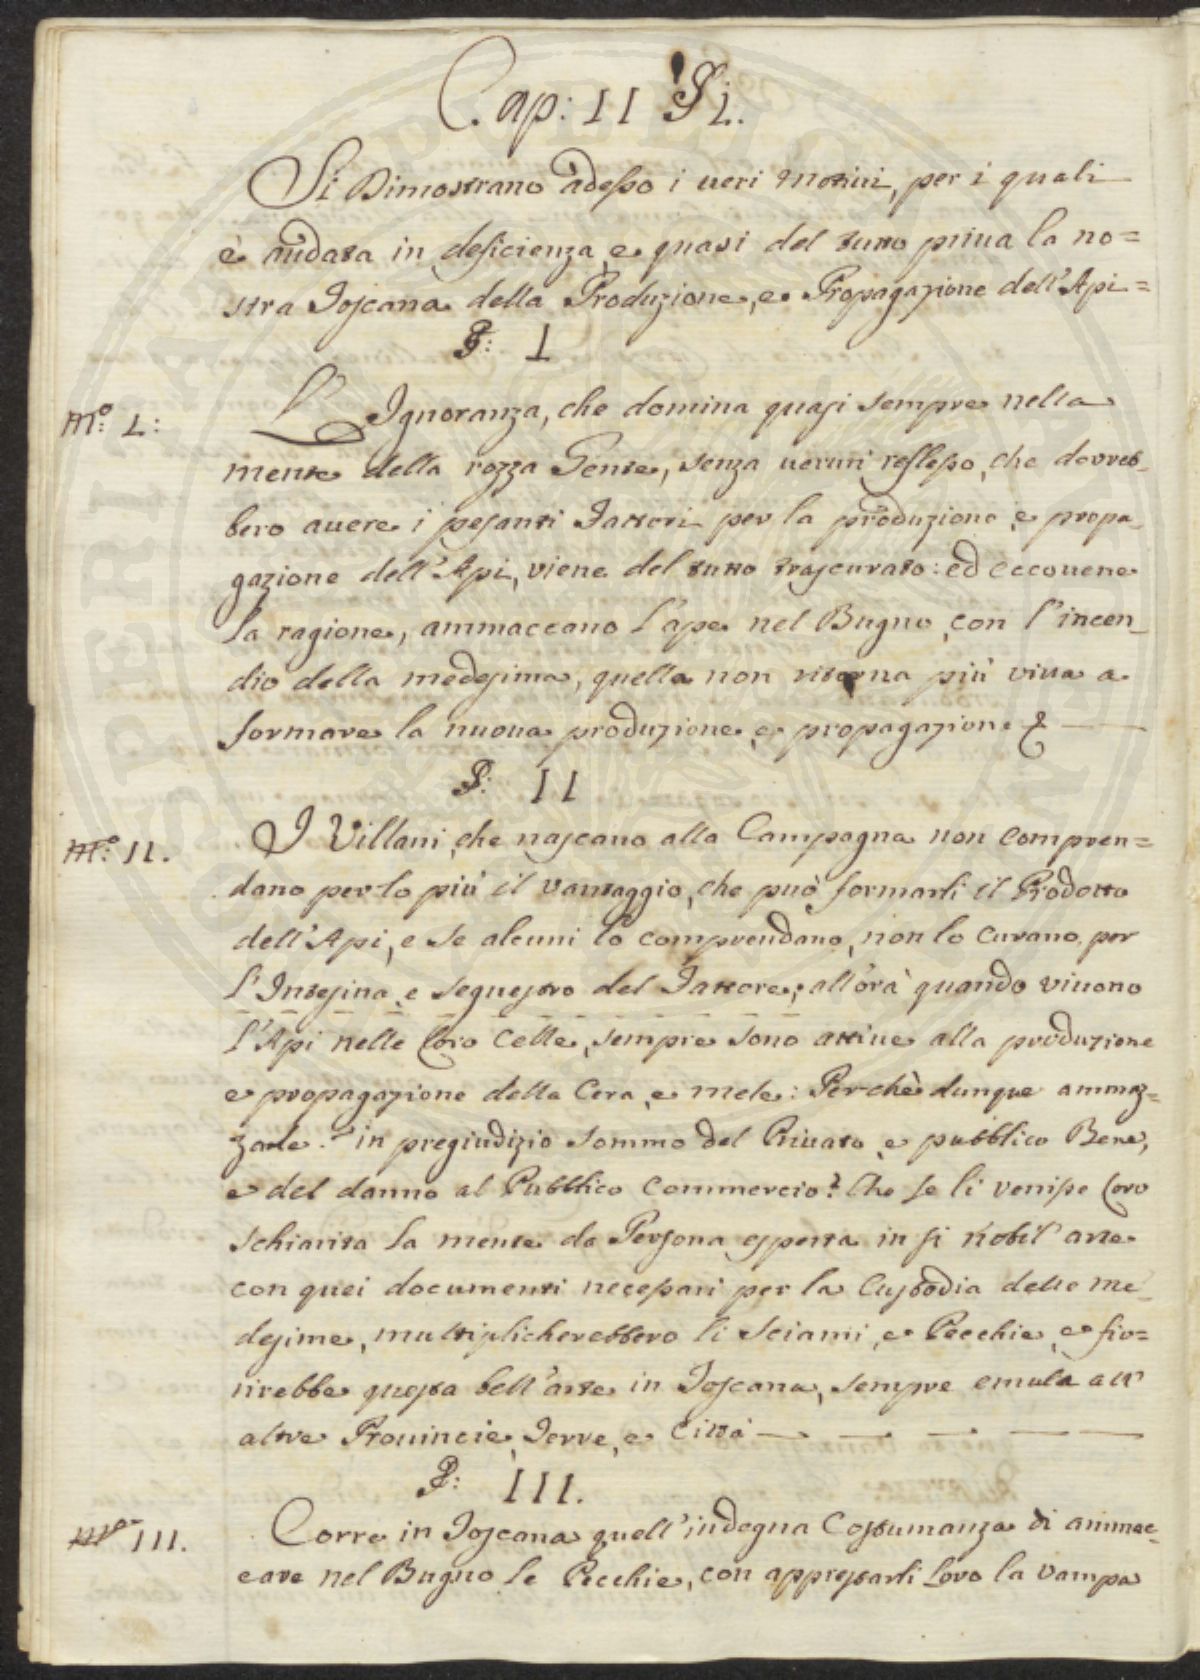 Cap: II § I.
Si Dimostrano adesso i veri Motivi, per i quali
è andata in deficienza, e quasi del tutto priva la no=
stra Toscana della Produzione, e Propagazione dell'Api=
§: I
M.º I: L'Ignoranza, che domina quasi sempre nella
mente della rozza Gente, senza verun reflesso, che dovreb-
bero avere i pesanti Fattori per la produzione, e propa-
gazione dell'Api, viene del tutto trascurato: ed eccovene
la ragione, ammaccano l'ape nel Bugno, con l'incen-
dio della medesima, quella non ritorna più viva a
formare la nuova produzione, e propagazione &
§: II
M.º II. I Villani, che nascano alla Campagna non compren=
dano per lo più il vantaggio, che può formarli il Prodotto
dell'Api, e se alcuni lo comprendano, non lo curano, per
l'Insegina, e sequestro del Fattore; all'ora quando vivono
l'Api nelle loro Celle, sempre sono attive alla produzione
e propagazione della Cera, e mele: Perchè dunque ammaz=
zarle? in pregiudizio sommo del Privato, e pubblico Bene,
e del danno al Pubblico Commercio? Che se li venisse loro
schiarita la mente da Persona esperta in si nobil'arte
con quei documenti necessari per la Custodia delle me-
desime, multiplicherebbero li Sciami, e Pecchie, e fio=
rirebbe questa bell'arte in Toscana, sempre emula all'
altre Provincie, Terre, e Città
§: III.
M.º III. Corre in Toscana quell'indegna Costumanza di ammac-
care nel Bugno le Pecchie, con appressarli loro la vampa